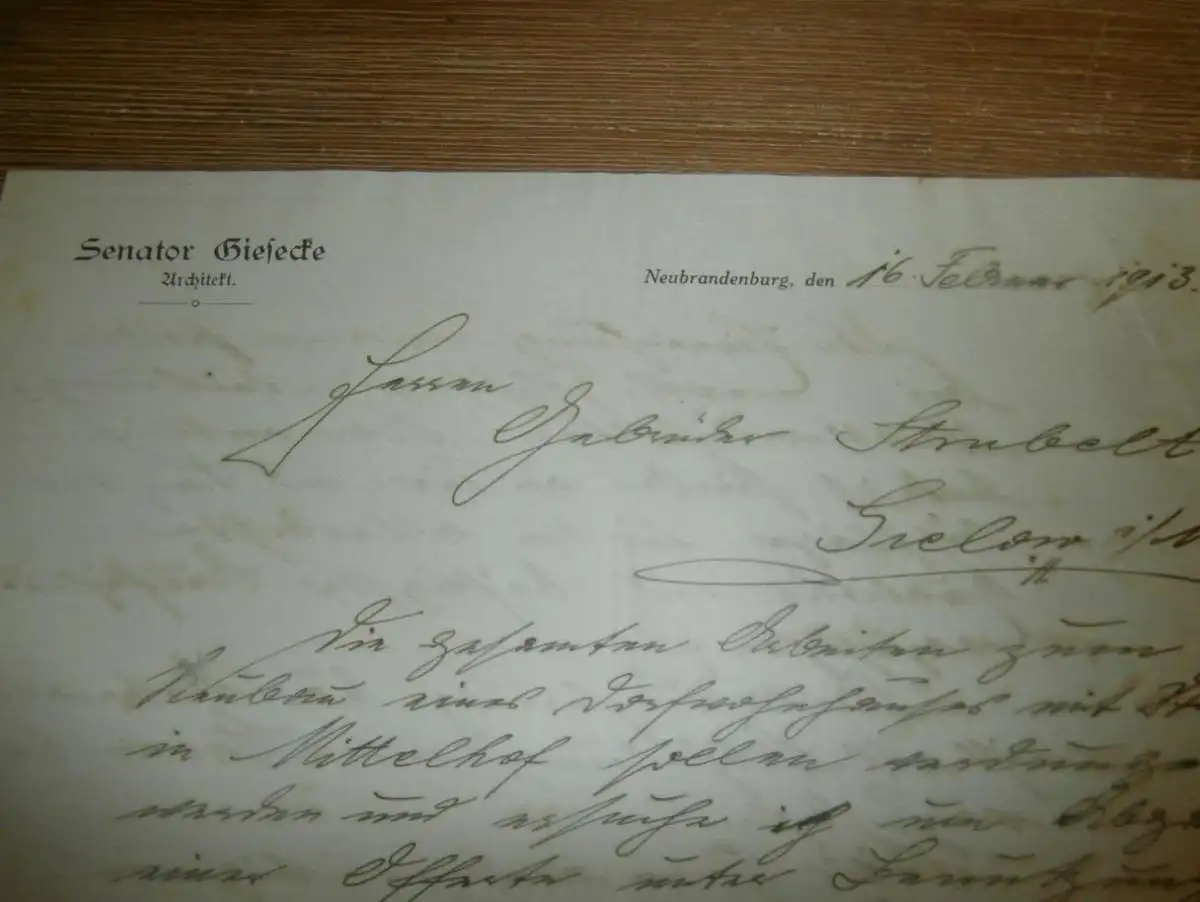 Senator Giesecke
Architekt.
Neubrandenburg, den 16. Februar 1913.
Herren
Gebrüder Strubelt
Gielow i/M
Die gesamten Arbeiten zum
Neubau eines Dorfwohnhauses mit
in Mittelhof sollen
werden und ersuche ich um
einer Offerte unter Benutzung